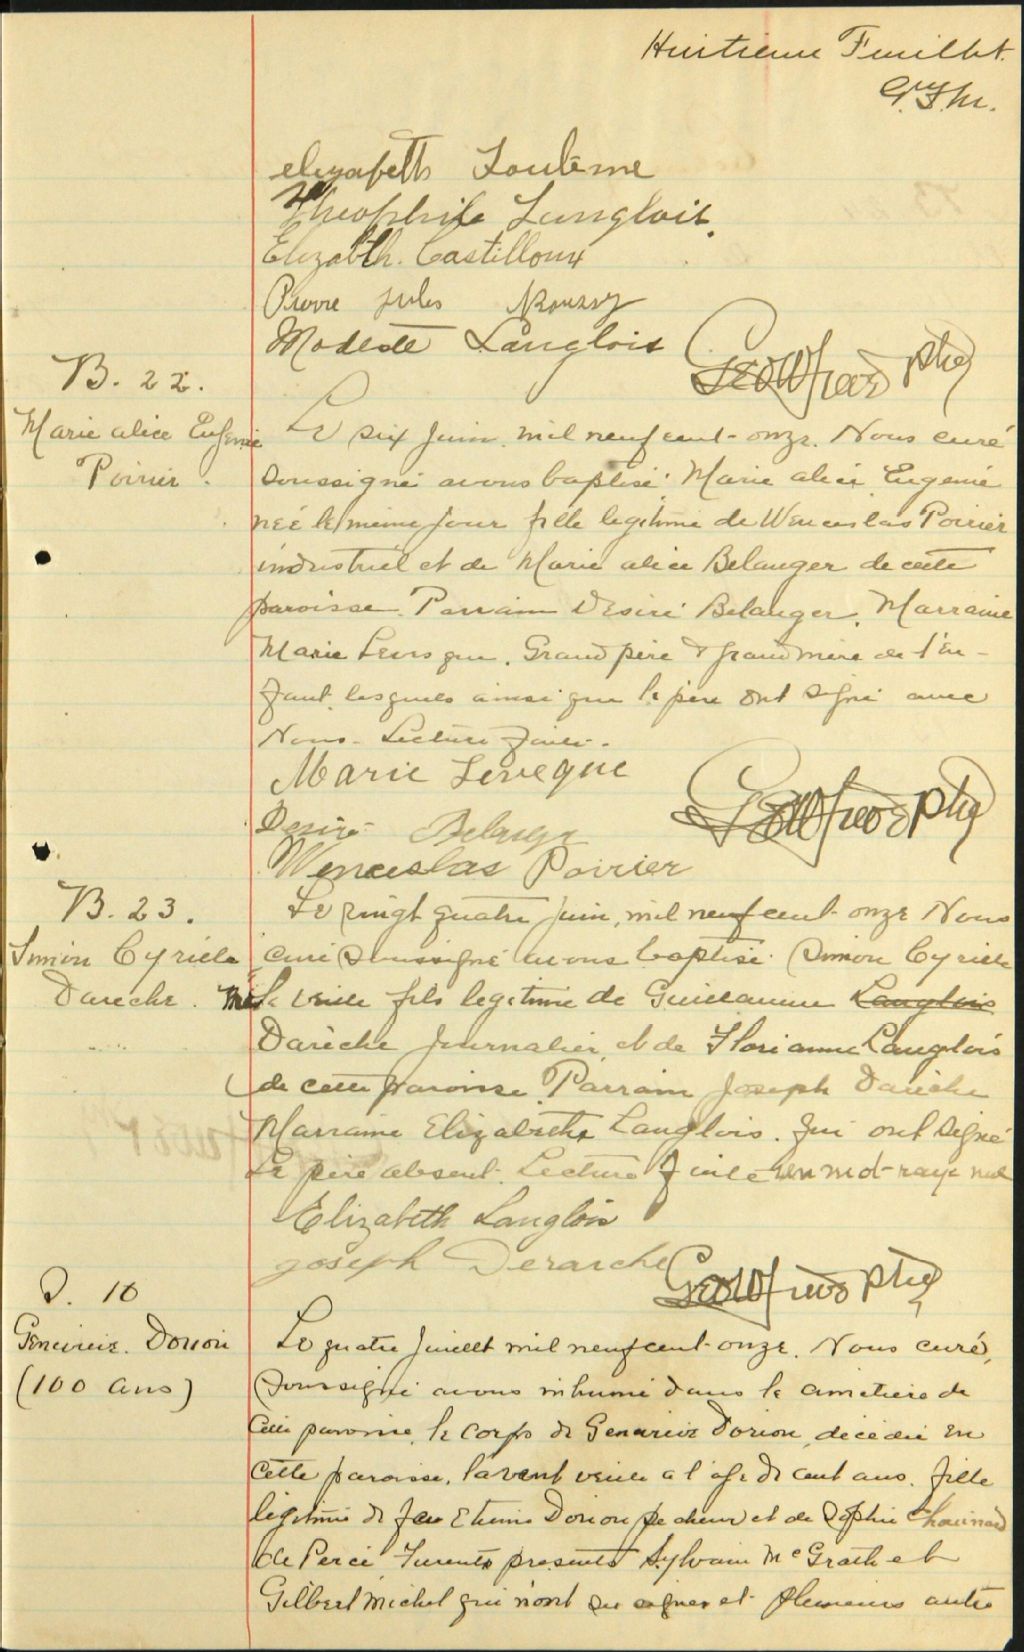 Huitieme Feuillet.
G.F.M.
elizabeth Soulème
Theophile Langlois.
Elizabth. Castilloux
Pierre jules Roussy
Modeste Langlois Geo W Frève ptre
B. 22.
Marie alice Eugenie
Poirier.
Le six juin mil neuf cent-onze. Nous curé
soussigné avons baptisé Marie alice Eugenie
née le même jour fille legitime de Wenceslas Poirier
industriel et de Marie alice Belanger de cette
paroisse. Parrain Désiré Belanger. Marraine
Marie Levesque. Grand père & grand mere de l'en-
fant lesquels ainsi que le père ont signé avec
Nous. Lecture faite.
Marie Leveque
Desiré Belanger
Wenceslas Poirier
B. 23.
Simon Cyrille
Darèche.
Le vingt quatre juin, mil neuf cent-onze Nous
curé soussigné avons baptisé Simon Cyrille
né la veille fils legitime de Guillaume Langlois
Darèche journalier, et de Florianne Langlois
de cette paroisse. Parrain Joseph Darèche
Marraine Elizabeth Langlois. qui ont signé
Le père absent. Lecture faite un mot rayé nul
Elizabeth Langlois
joseph Derarche Geo W Frève ptre
S. 10
Genevieve. Dorion
(100 ans)
Le quatre juillet mil neuf cent-onze. Nous curé,
soussigné avons inhumé dans le cimetiere de
cette paroisse, le corps de Genevieve Dorion, décédée en
cette paroisse, l'avant veille a l'age de cent ans. fille
legitime de feu Etienne Dorion pecheur et de Sophie Chouinard
de Percé Furent presents Sylvain McGrath et
Gilbert Michel qui n'ont su signer et plusieurs autre